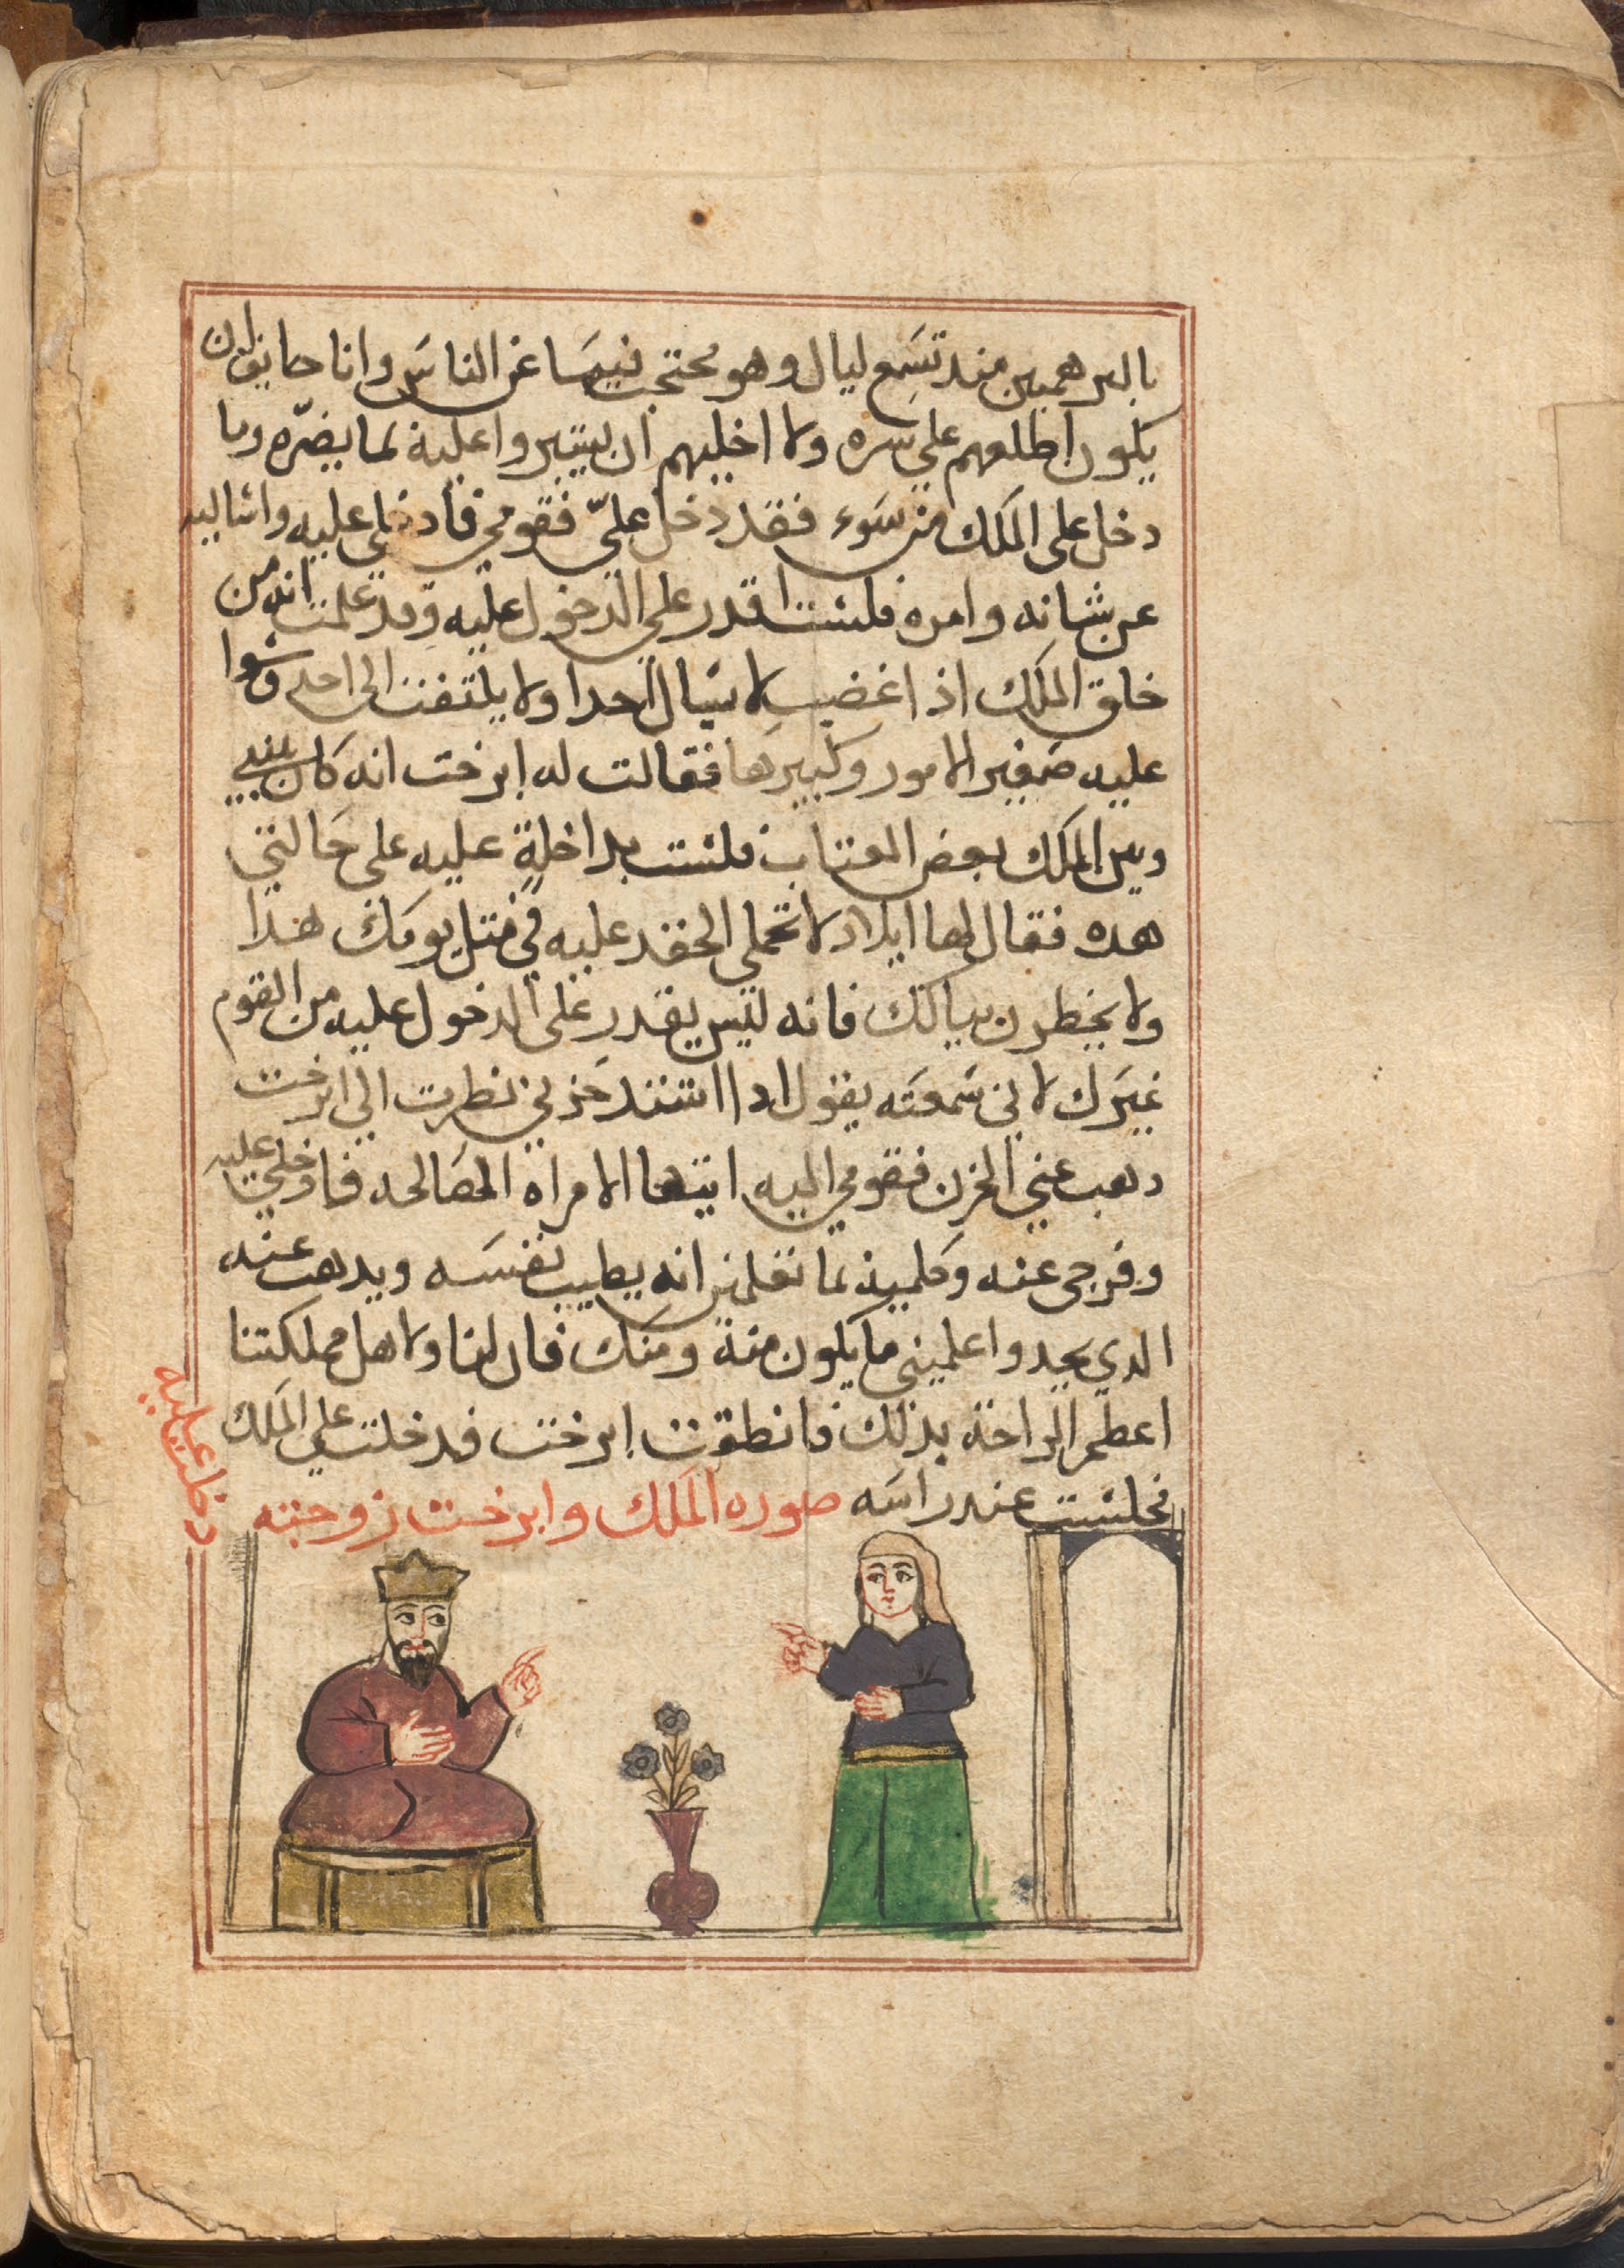 بالبرهمين مند تسع ليال وهو محتجب فيها عن الناس وانا خايف ان
يكون اطلعهم علي سره ولا اخليهم ان يشيروا عليه لما يضرّه وما
دخل على الملك من سوء فقد دخل عليّ فقومي فادخلي عليه واساليه
عن شانه وامره فلست اقدر علي الدخول عليه وقد علمت انه من
خلق الملك اذا غضب لا يسال احدا ولا يلتفت الى احد وسوا
عليه صغير الامور وكبيرها فقالت له ابرخت انه كان بيني
وبين الملك بعض العتاب فلست بداخلة عليه على حالتي
هده فقال لها ايلاد لا تحملي الحقد عليه في مثل يومك هذا
ولا يخطرن ببالك فانه ليس يقدر على الدخول عليه من القوم
غيرك لاني سمعته يقول ادا اشتد حزني نظرت الي ابرخت
دهب عني الحزن فقومي اليه ايتها الامراه الصالحه فادخلي عليه
وفرجي عنه وكلميه بما تعلمين انه يطيب نفسه ويدهب عنه
الدي يجد واعلميني ما يكون منه ومنك فان لنا ولاهل مملكتنا
اعظم الراحة بذلك فانطلقت ابرخت فدخلت علي الملك
فجلست عند راسه صوره الملك وابرخت زوجته
دخلت عليه